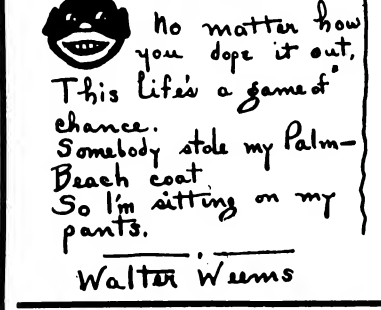 No matter how
you dope it out,
This life's a game of
chance.
Somebody stole my Palm-
Beach coat
So I'm sitting on my
pants.
Walter Weems